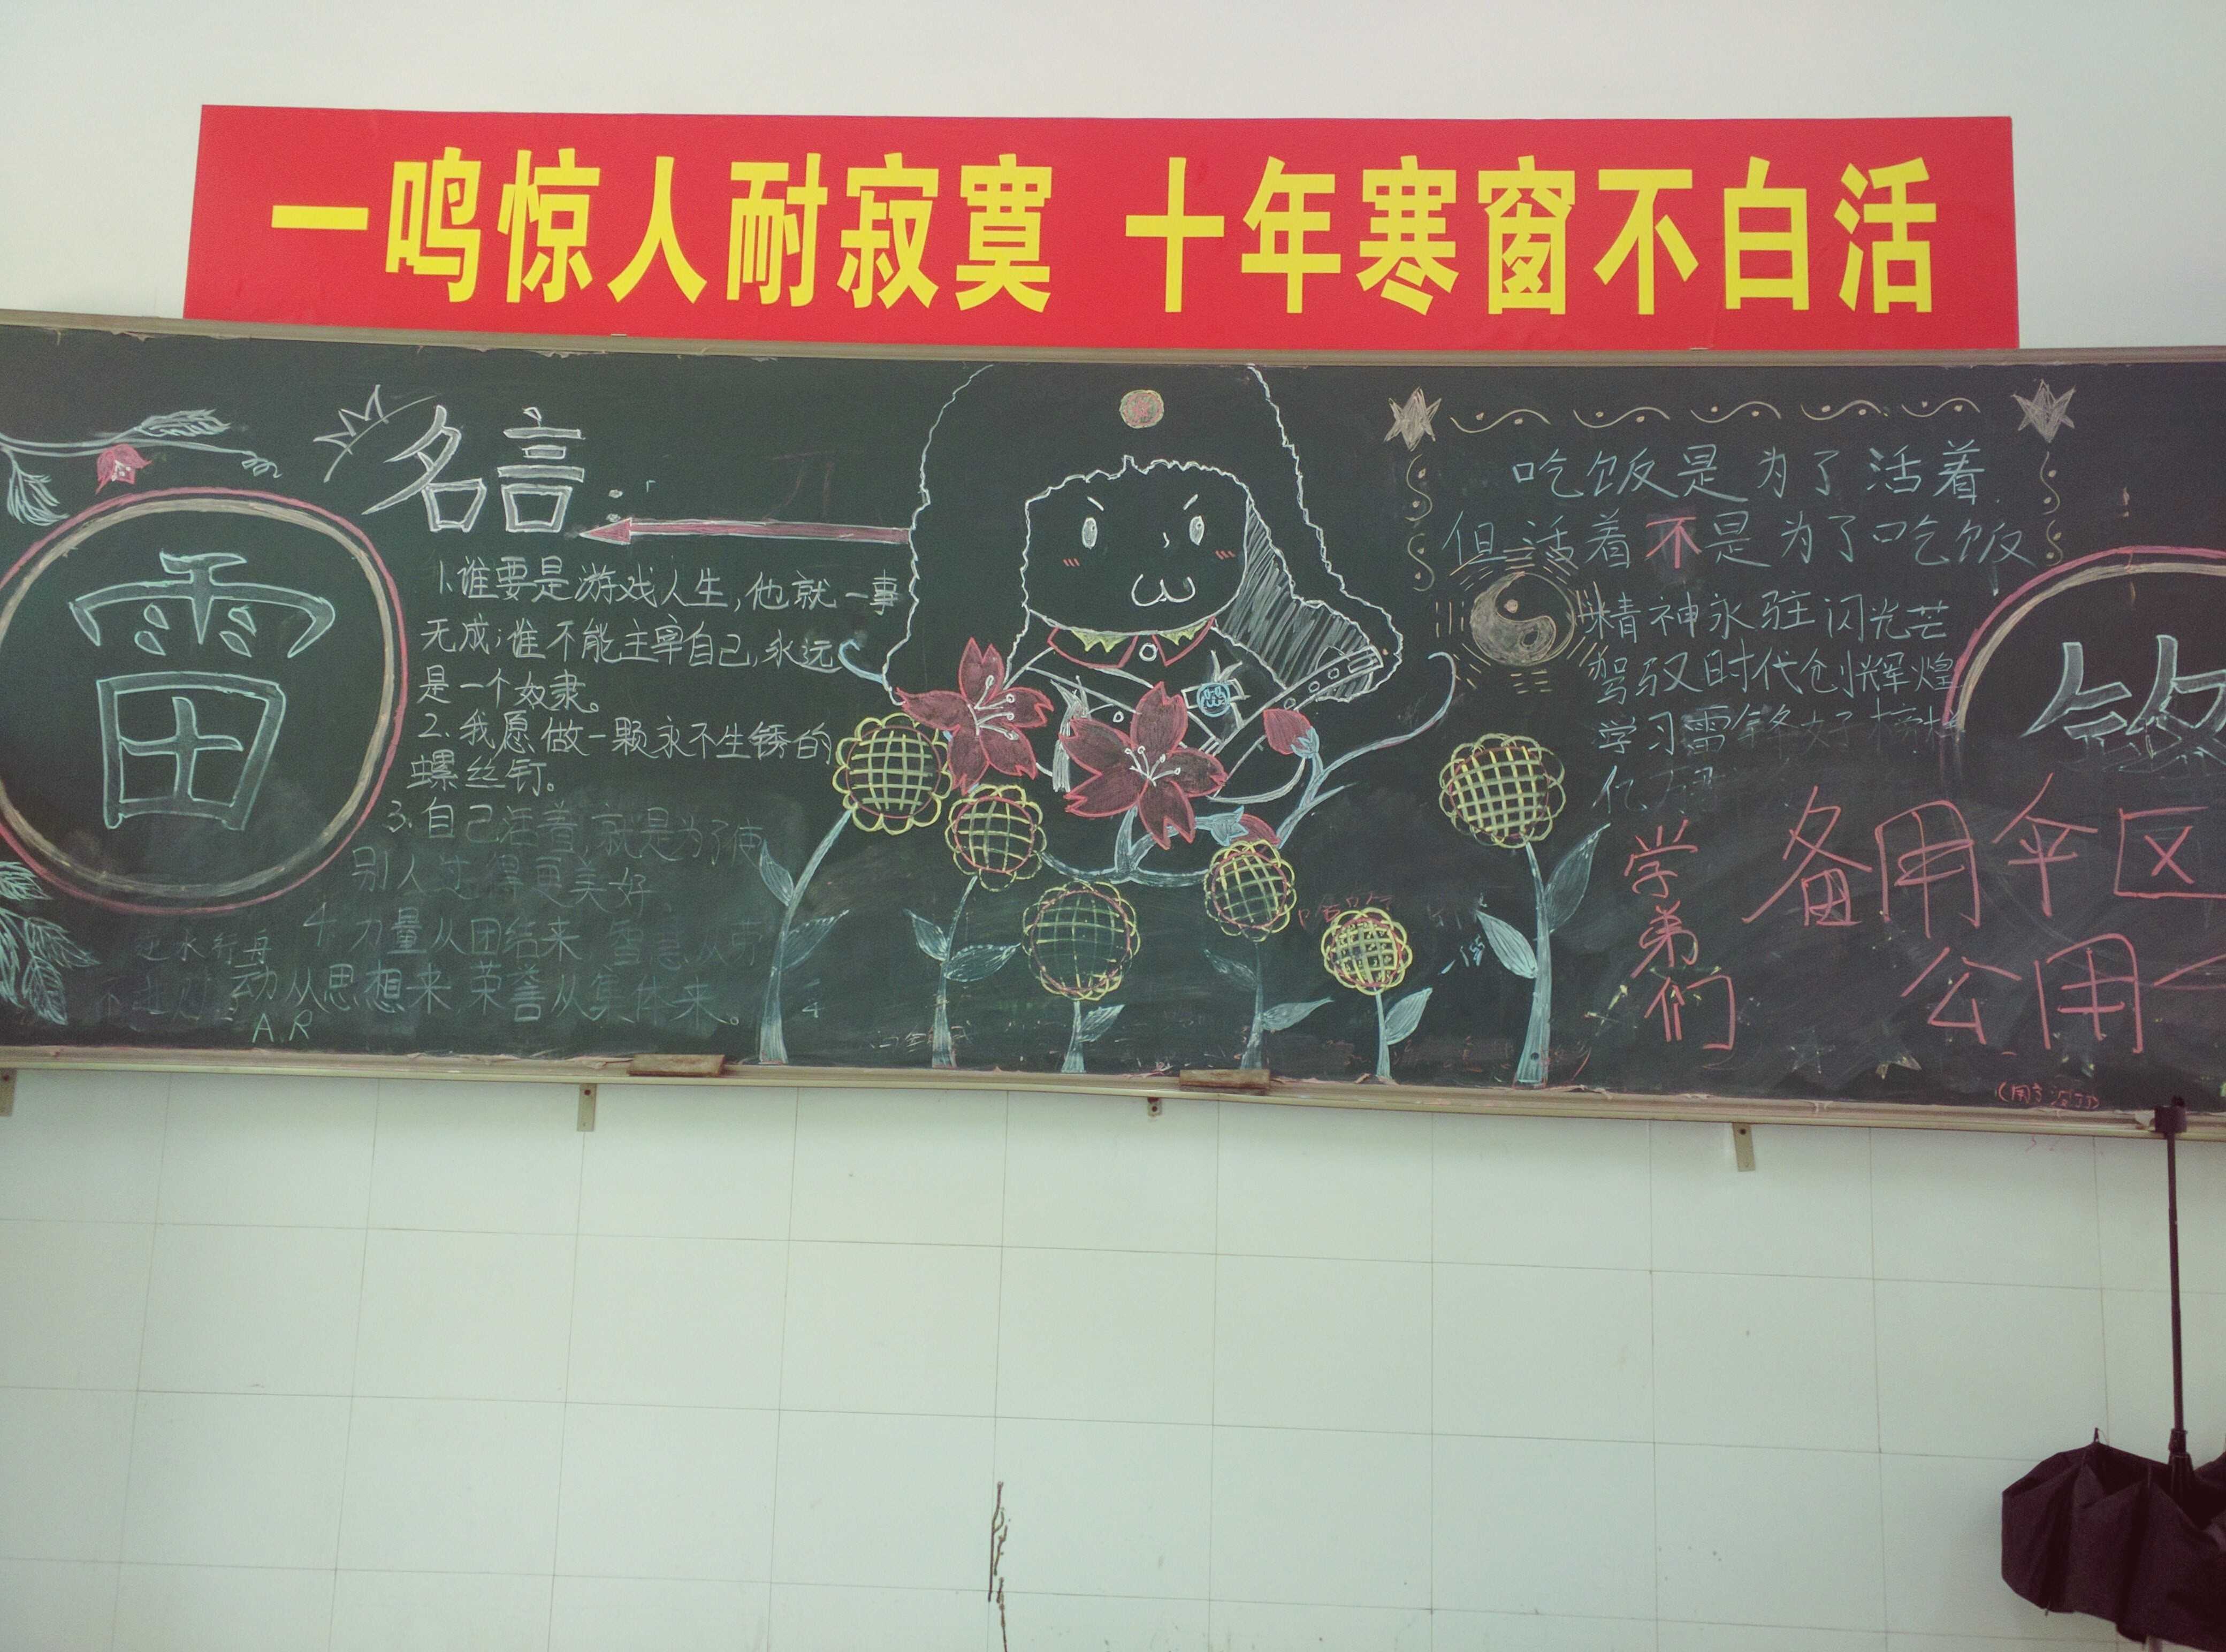 一鸣惊人耐寂寞 十年寒窗不白活
名言:
雷
1.谁要是游戏人生,他就一事
无成;谁不能主宰自己,永远
是一个奴隶。
2.我愿做一颗永不生锈的
螺丝钉。
3.自己活着,就是为了
别人过得更美好
4.力量从团结来
动从思想来,荣誉从集体来。
逆水行舟
A.R
吃饭是为了活着
但活着不是为了吃饭
精神永驻闪光芒
驾驭时代创辉煌
学习雷锋好榜样
锋
学弟们
备用伞区
公用